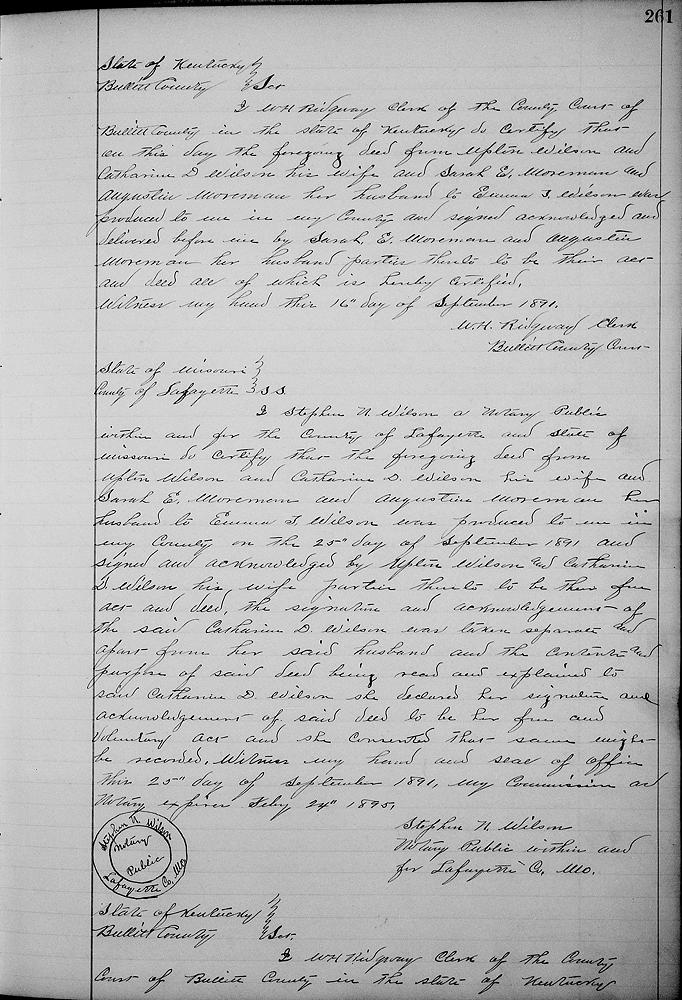 261
State of Kentucky }
Bullitt County } Sct
I W.H. Ridgway Clerk of the County Court of
Bullitt County in the state of Kentucky do certify that
on this day the foregoing deed from Upton Wilson and
Catharine D Wilson his wife and Sarah E. Moreman and
Augustin Moreman her husband to Emma T. Wilson was
produced to me in my County and signed acknowledged and
delivered before me by Sarah E. Moreman and Augustin
Moreman her husband parties thereto to be their act
and deed all of which is hereby certified.
Witness my hand this 16" day of September 1891.
W.H. Ridgway Clerk
Bullitt County Court
State of Missouri }
County of Lafayette } S.S.
I Stephen N. Wilson a Notary Public
within and for the County of Lafayette and State of
Missouri do certify that the foregoing deed from
Upton Wilson and Catharine D. Wilson his wife and
Sarah E. Moreman and Augustine Moreman her
husband to Emma T Wilson was produced to me in
my County on the 25" day of September 1891 and
signed and acknowledged by Upton Wilson and Catharine
D. Wilson his wife parties thereto to be their free
act and deed, the signature and acknowledgement of
the said Catharine D. Wilson was taken separate and
apart from her said husband and the contents and
purpose of said deed being read and explained to
said Catharine D. Wilson she declared her signature and
acknowledgement of said deed to be her free and
voluntary act and she consented that same might
be recorded. Witness my hand and seal of office
this 25" day of September 1891, my Commission as
Notary expires Feby 24" 1895.
Stephen N. Wilson
Notary Public within and
for Lafayette Co, Mo.
Stephen N. Wilson
Notary
Public
Lafayette Co, Mo
State of Kentucky }
Bullitt County } Sct.
I W.H Ridgway Clerk of the County
Court of Bullitt County in the state of Kentucky